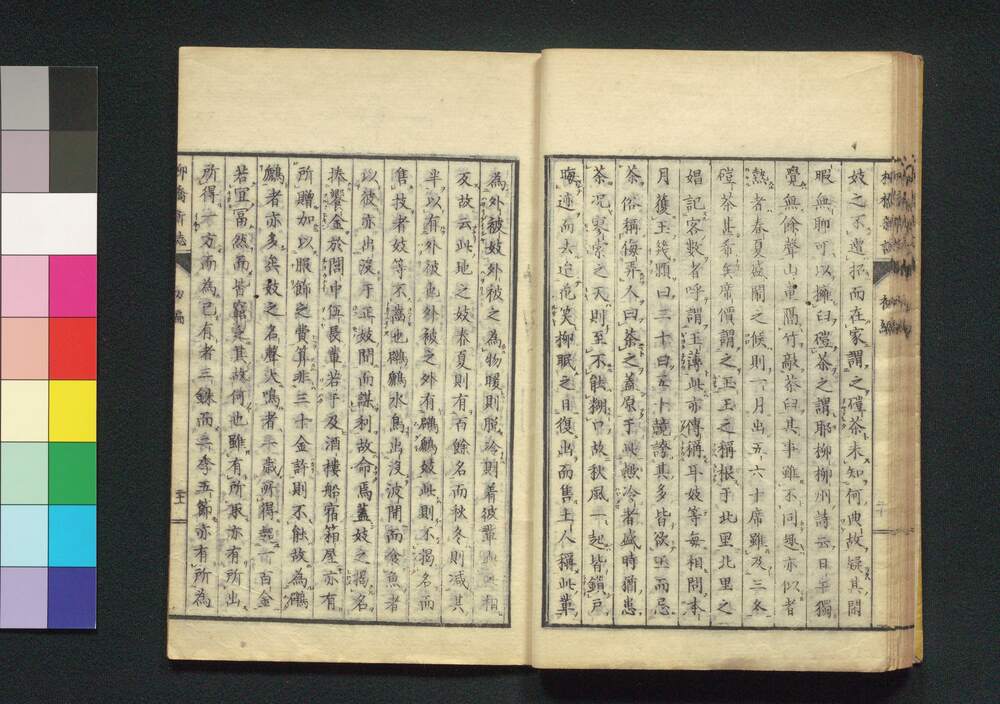 妓之不遭招而在家謂之磑茶未知何典故疑其閒
暇無聊可以擁臼磑茶之謂耶柳柳州詩云日午獨
覺無餘聲山童隔竹敲茶臼其事雖不同趣亦似者
熱者春夏盛鬧之候則一月出五六十席雖及三冬
磑茶甚希矣席價謂之玉玉之稱根于北里北里之
娼記客數者呼謂玉簿此亦傳稱耳妓等每相問本
月獲玉幾顆曰三十曰五十競誇其多皆欲玉而忌
茶俗稱侮弄人曰茶之蓋原于此慨冷者盛時猶患
茶况寒索之天則至不能糊口故秋風一起皆鎖戶
晦迹而去迨花笑柳眠之日復出而售土人稱此輩
為外被妓外被之為物暖則脫冷則着彼輩 相
反故云此地之妓春夏則有百餘名而秋冬則减其
半以有外被也外被之外有鸕鷀妓此則不揭名而
售技者妓等不齒也鸕鷀水鳥出沒波間而食魚者
以彼亦出沒于正妓間而謀利故命焉蓋妓之揭名
捧饗金於閭中伍長輩若干及酒樓船宿箱屋亦有
所贈加以服飾之費算非三十金許則不能故為鸕
鷀者亦多矣數之名聲大鳴者半歲所得 百金
若宜冨然而皆窮是其故何也雖有所取亦有所出
所得一方而為己有者三錬而二季五節亦有所為
柳橋新誌 初編